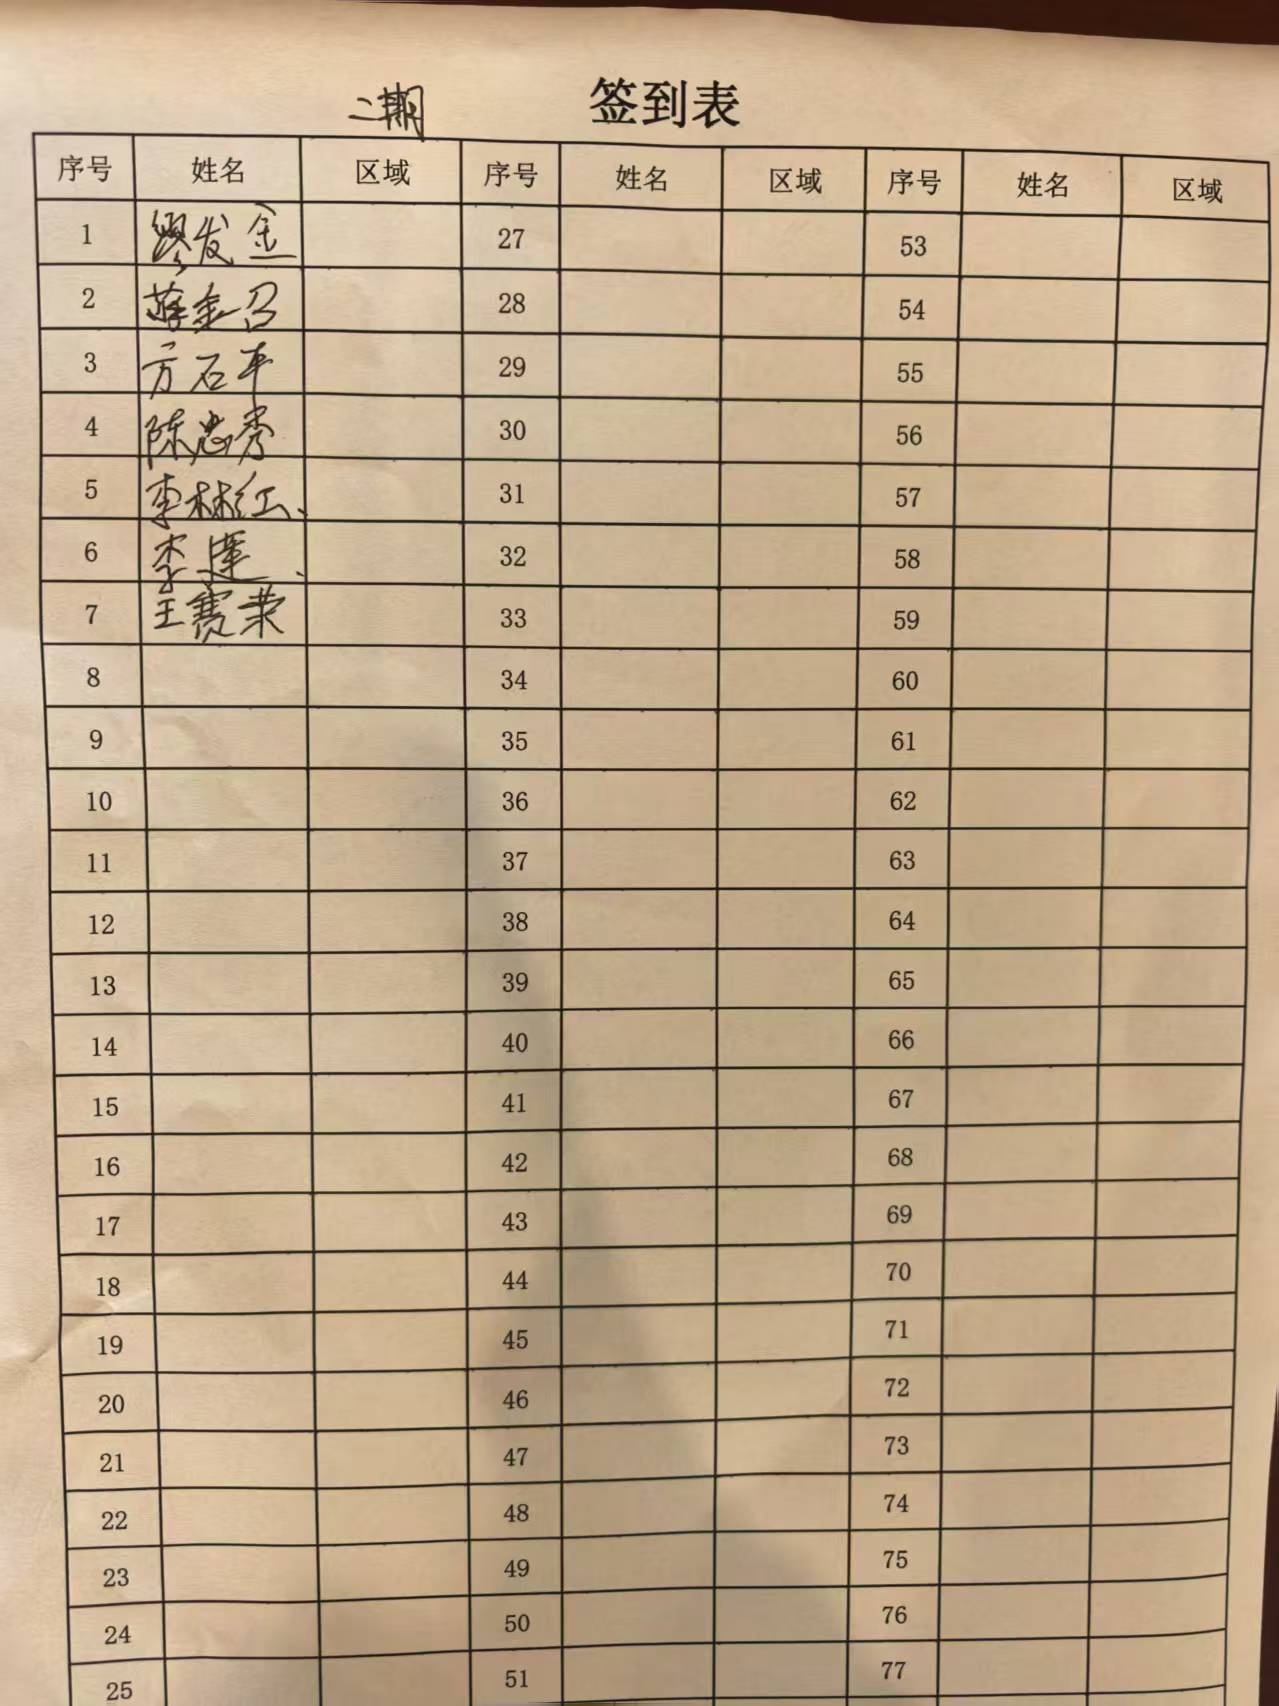 二期 签到表
序号 姓名 区域 序号 姓名 区域 序号 姓名 区域
1 缪发金 27 53
2 蒋金召 28 54
3 方石平 29 55
4 陈忠秀 30 56
5 李林红、 31 57
6 李莲、 32 58
7 王赛荣 33 59
8 34 60
9 35 61
10 36 62
11 37 63
12 38 64
13 39 65
14 40 66
15 41 67
16 42 68
17 43 69
18 44 70
19 45 71
20 46 72
21 47 73
22 48 74
23 49 75
24 50 76
25 51 77